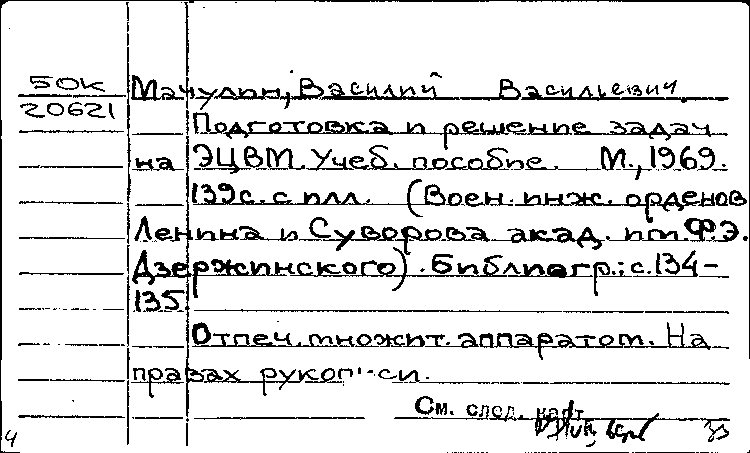 50К Мачулин, Василий Васильевич.
20621
Подготовка и решение задач
на ЭЦВМ. Учеб. пособие. М., 1969.
139с. с илл. (Воен. инж. орденов
Ленина и Суворова акад. им. Ф.Э.
Дзержинского). Библиогр.: с.134-
135
Отпеч. множит. аппаратом. На
правах рукописи.
См. след. карт.
4